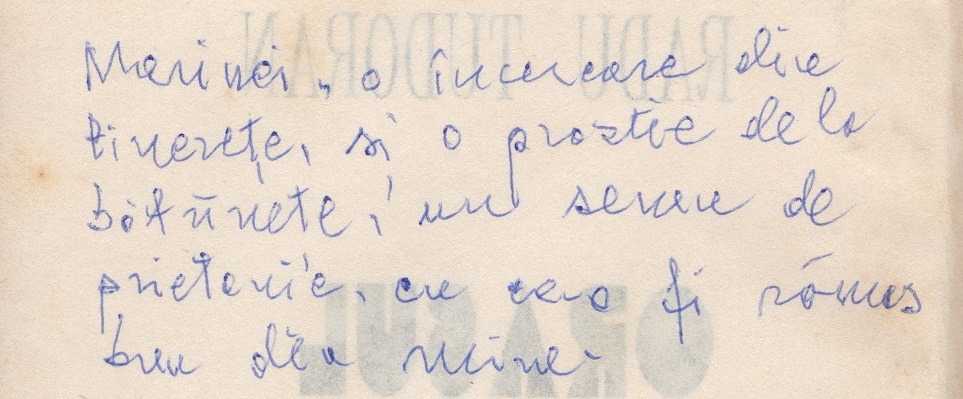 RADU TUDORAN
Marinei, o încercare din
tinerețe, și o prostie de la
bătrînețe, un semn de
prietenie, cu ce a fi rămas
bun din mine.
ORAȘUL